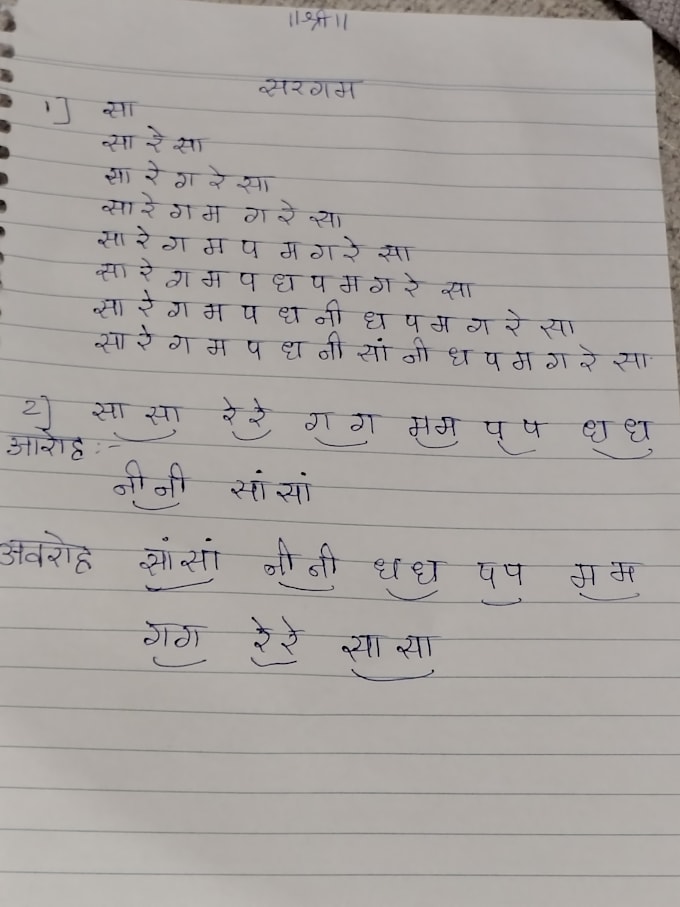 ॥श्री॥
सरगम
१] सा
सा रे सा
सा रे ग रे सा
सा रे ग म ग रे सा
सा रे ग म प म ग रे सा
सा रे ग म प ध प म ग रे सा
सा रे ग म प ध नी ध प म ग रे सा
सा रे ग म प ध नी सां नी ध प म ग रे सा
2] सा सा रे रे ग ग म म प प ध ध
आरोह :-
नी नी सां सां
अवरोह सां सां नी नी ध ध प प म म
ग ग रे रे सा सा